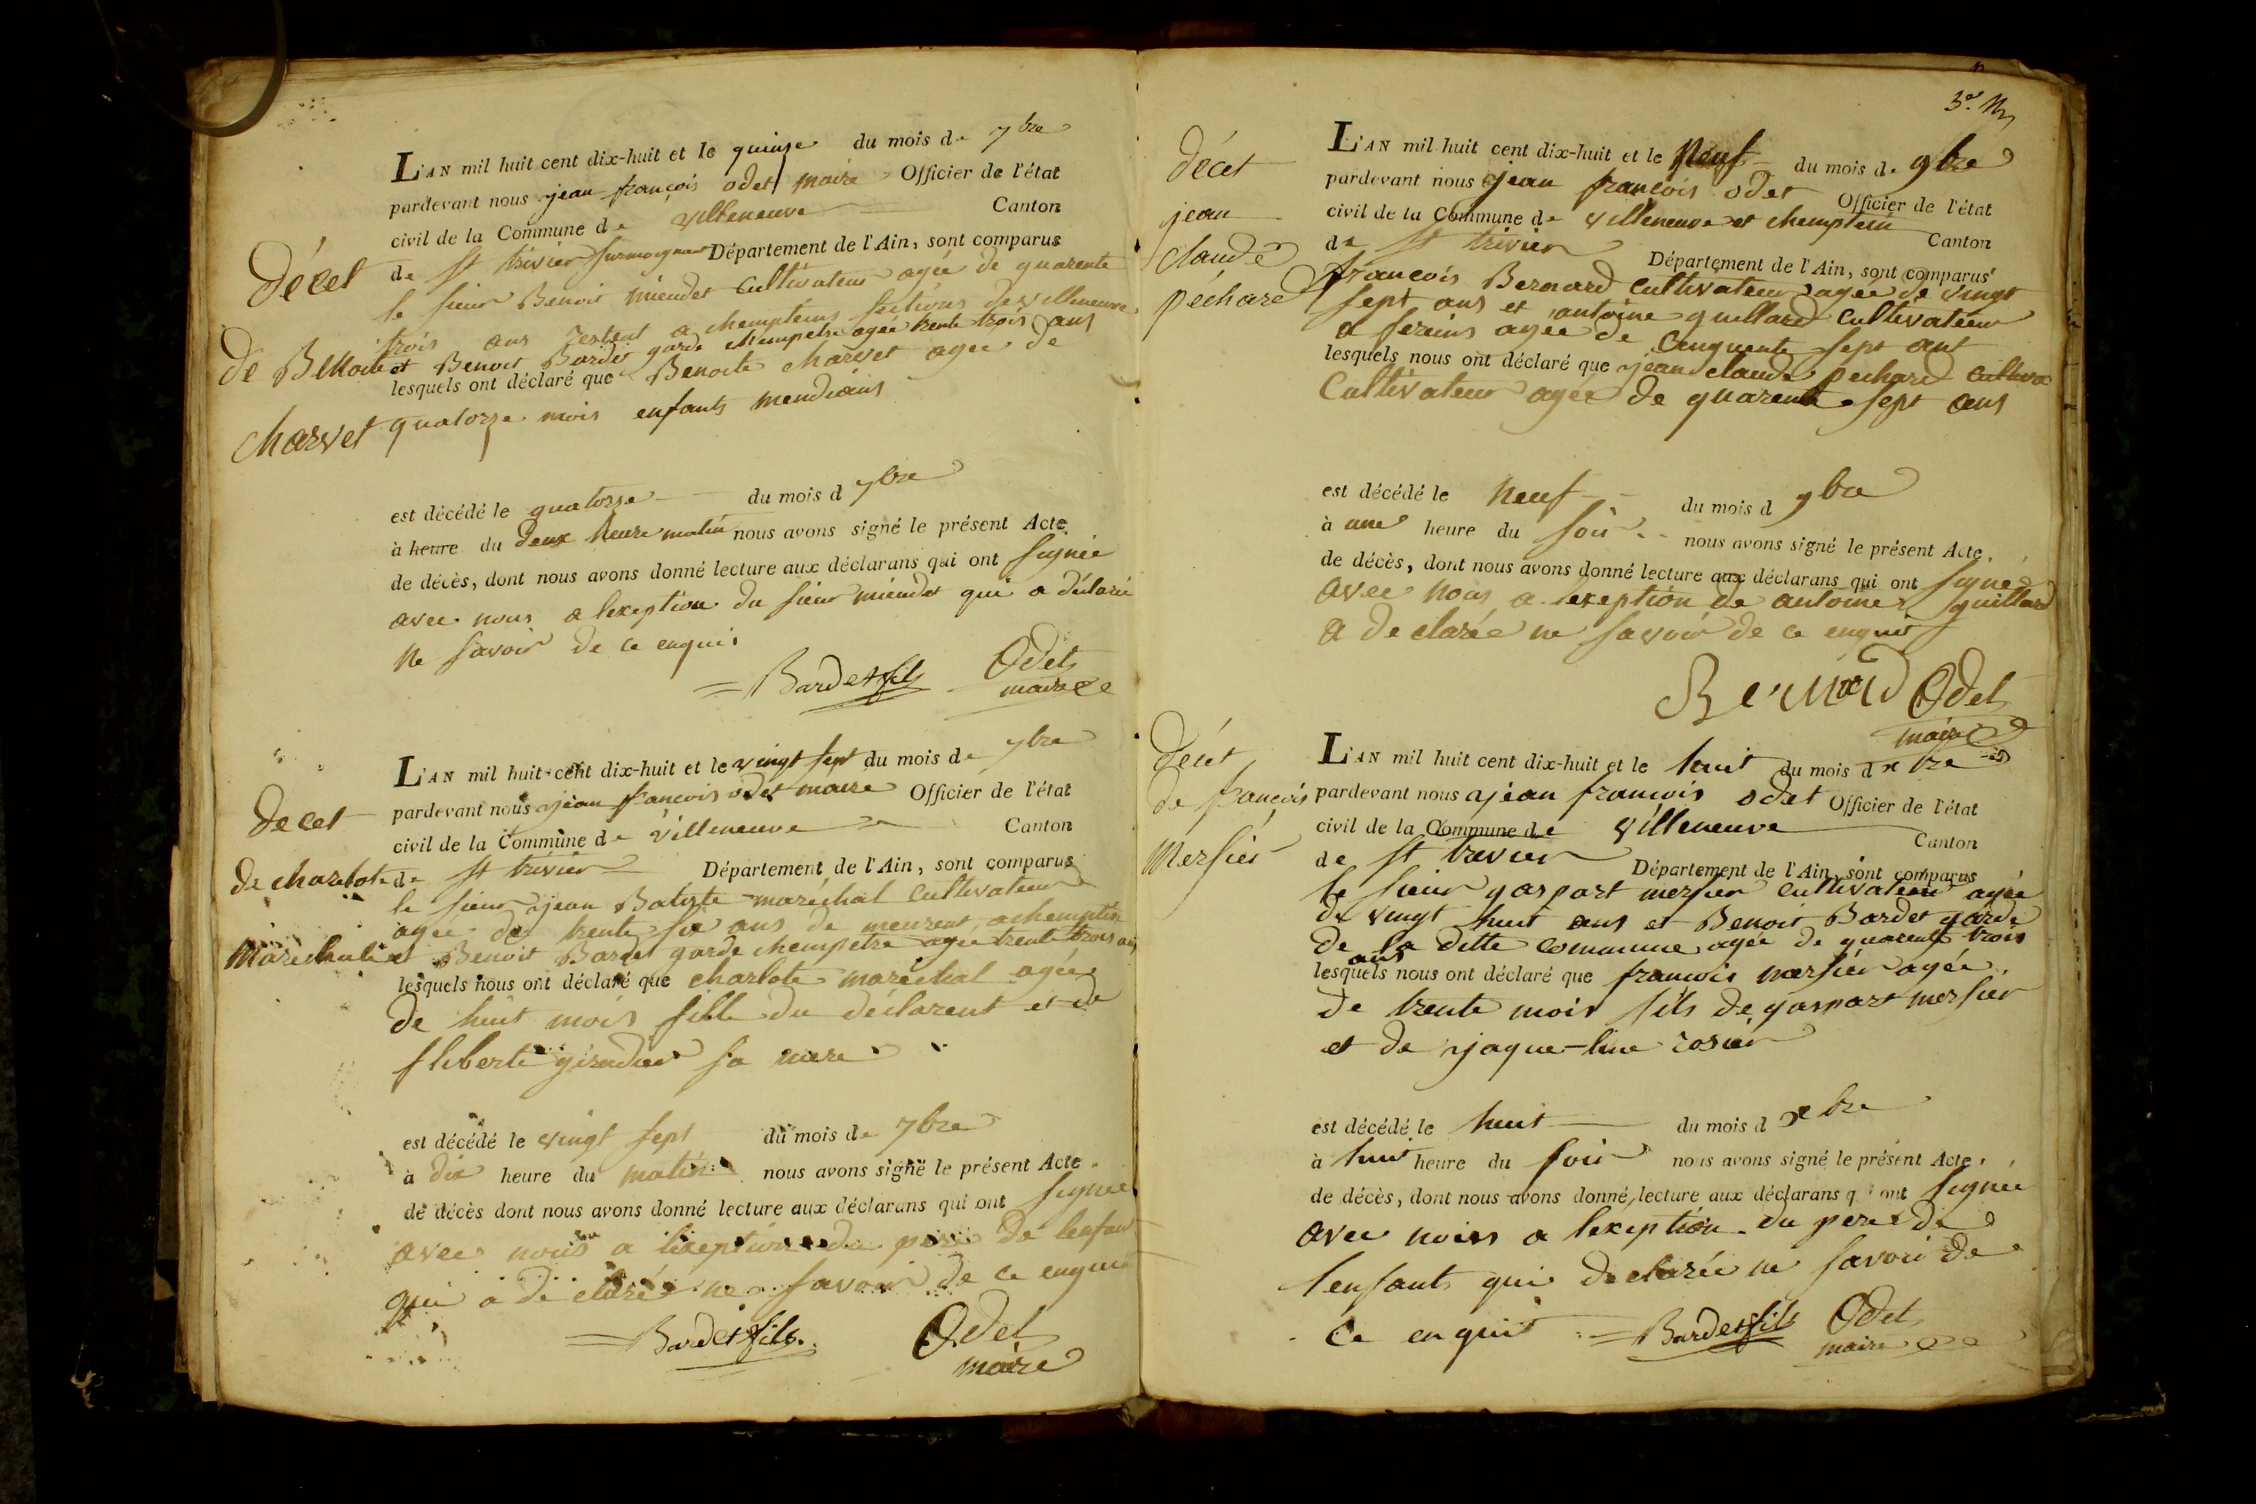 L'AN mil huit cent dix-huit et le quinze du mois de 7bre
pardevant nous jean françois odet maire Officier de l'état
civil de la Commune de villeneuve Canton
de st trivier surmoignan Département de l'Ain, sont comparus
le sieur Benoit miendet cultivateur agée de quarente
trois ans restent a chempteins sections de villeneuve
et Benoit Bardet garde chempetre agée trente trois ans
lesquels ont déclaré que Benoite charvet agée de
quatorze mois enfants mendians
décet
de Benoite
charvet
est décédé le quatorze du mois d 7bre
à heure du deux heure matin nous avons signé le présent Acte
de décès, dont nous avons donné lecture aux déclarans qui ont signée
avec nous a lexeption du sieur miendet qui a déclaré
ne savoir de ce enquis
Bardet fils Odet
maire
L'AN mil huit cent dix-huit et le vingt sept du mois de 7bre
pardevant nous jean françois odet maire Officier de l'état
civil de la Commune de villeneuve Canton
de st trivier Département de l'Ain, sont comparus
le sieur jean Batiste maréchal cultivateur
agée de trente six ans de meurent a chemptin
et Benoit Bardet garde chempetre agée trente trois ans
lesquels nous ont déclaré que charlote maréchal agée
de huit mois fille du déclarent et de
fliberte girudier sa mere
decet
de charlote
maréchale
est décédé le vingt sept du mois de 7bre
à dix heure du matin nous avons signé le présent Acte
de décès dont nous avons donné lecture aux déclarans qui ont signée
avec nous a lexeption du pere de lenfant
qui a déclaré ne savoir de ce enquis
Bardet fils. Odet
maire
3e
L'AN mil huit cent dix-huit et le Neuf du mois de 9bre
pardevant nous jean françois odet Officier de l'état
civil de la Commune de villeneuve et chemptein Canton
de st trivier Département de l'Ain, sont comparus
françois Bernard cultivateur agée de vingt
sept ans et antoine guillard cultivateur
a fereins agée de cenquente sept ant
lesquels nous ont déclaré que jean claude pechard cultiva
Cultivateur agée de quarente sept ans
décet
jean
claude
péchard
est décédé le Neuf du mois d 9bre
à une heure du soir nous avons signé le présent Acte.
de décès, dont nous avons donné lecture aux déclarans qui ont signée
avec nous a lexeption de antoine guillard
a declarée ne savoir de ce enquis
Bernard Odet
maire
L'AN mil huit cent dix-huit et le huit du mois d xbre
pardevant nous jean francois odet Officier de l'état
civil de la Commune de villeneuve Canton
de st trevier Département de l'Ain, sont comparus
le sieur gaspart mersier cultivateur agée
de vingt huit ans et Benoit Bardet garde
de la ditte commune agée de quarente trois
ans
lesquels nous ont déclaré que francois mersier agée
de trente mois fils de gaspart mersier
et de jaque-line rosier
décet
de françois
Mersier
est décédé le huit du mois d xbre
à huit heure du soir nous avons signé le présent Acte.
de décès, dont nous avons donné lecture aux déclarans qui ont signée
avec nous a lexeption du pere de
lenfant qui declarée ne savoir de
ce enquis Bardet fils Odet
maire